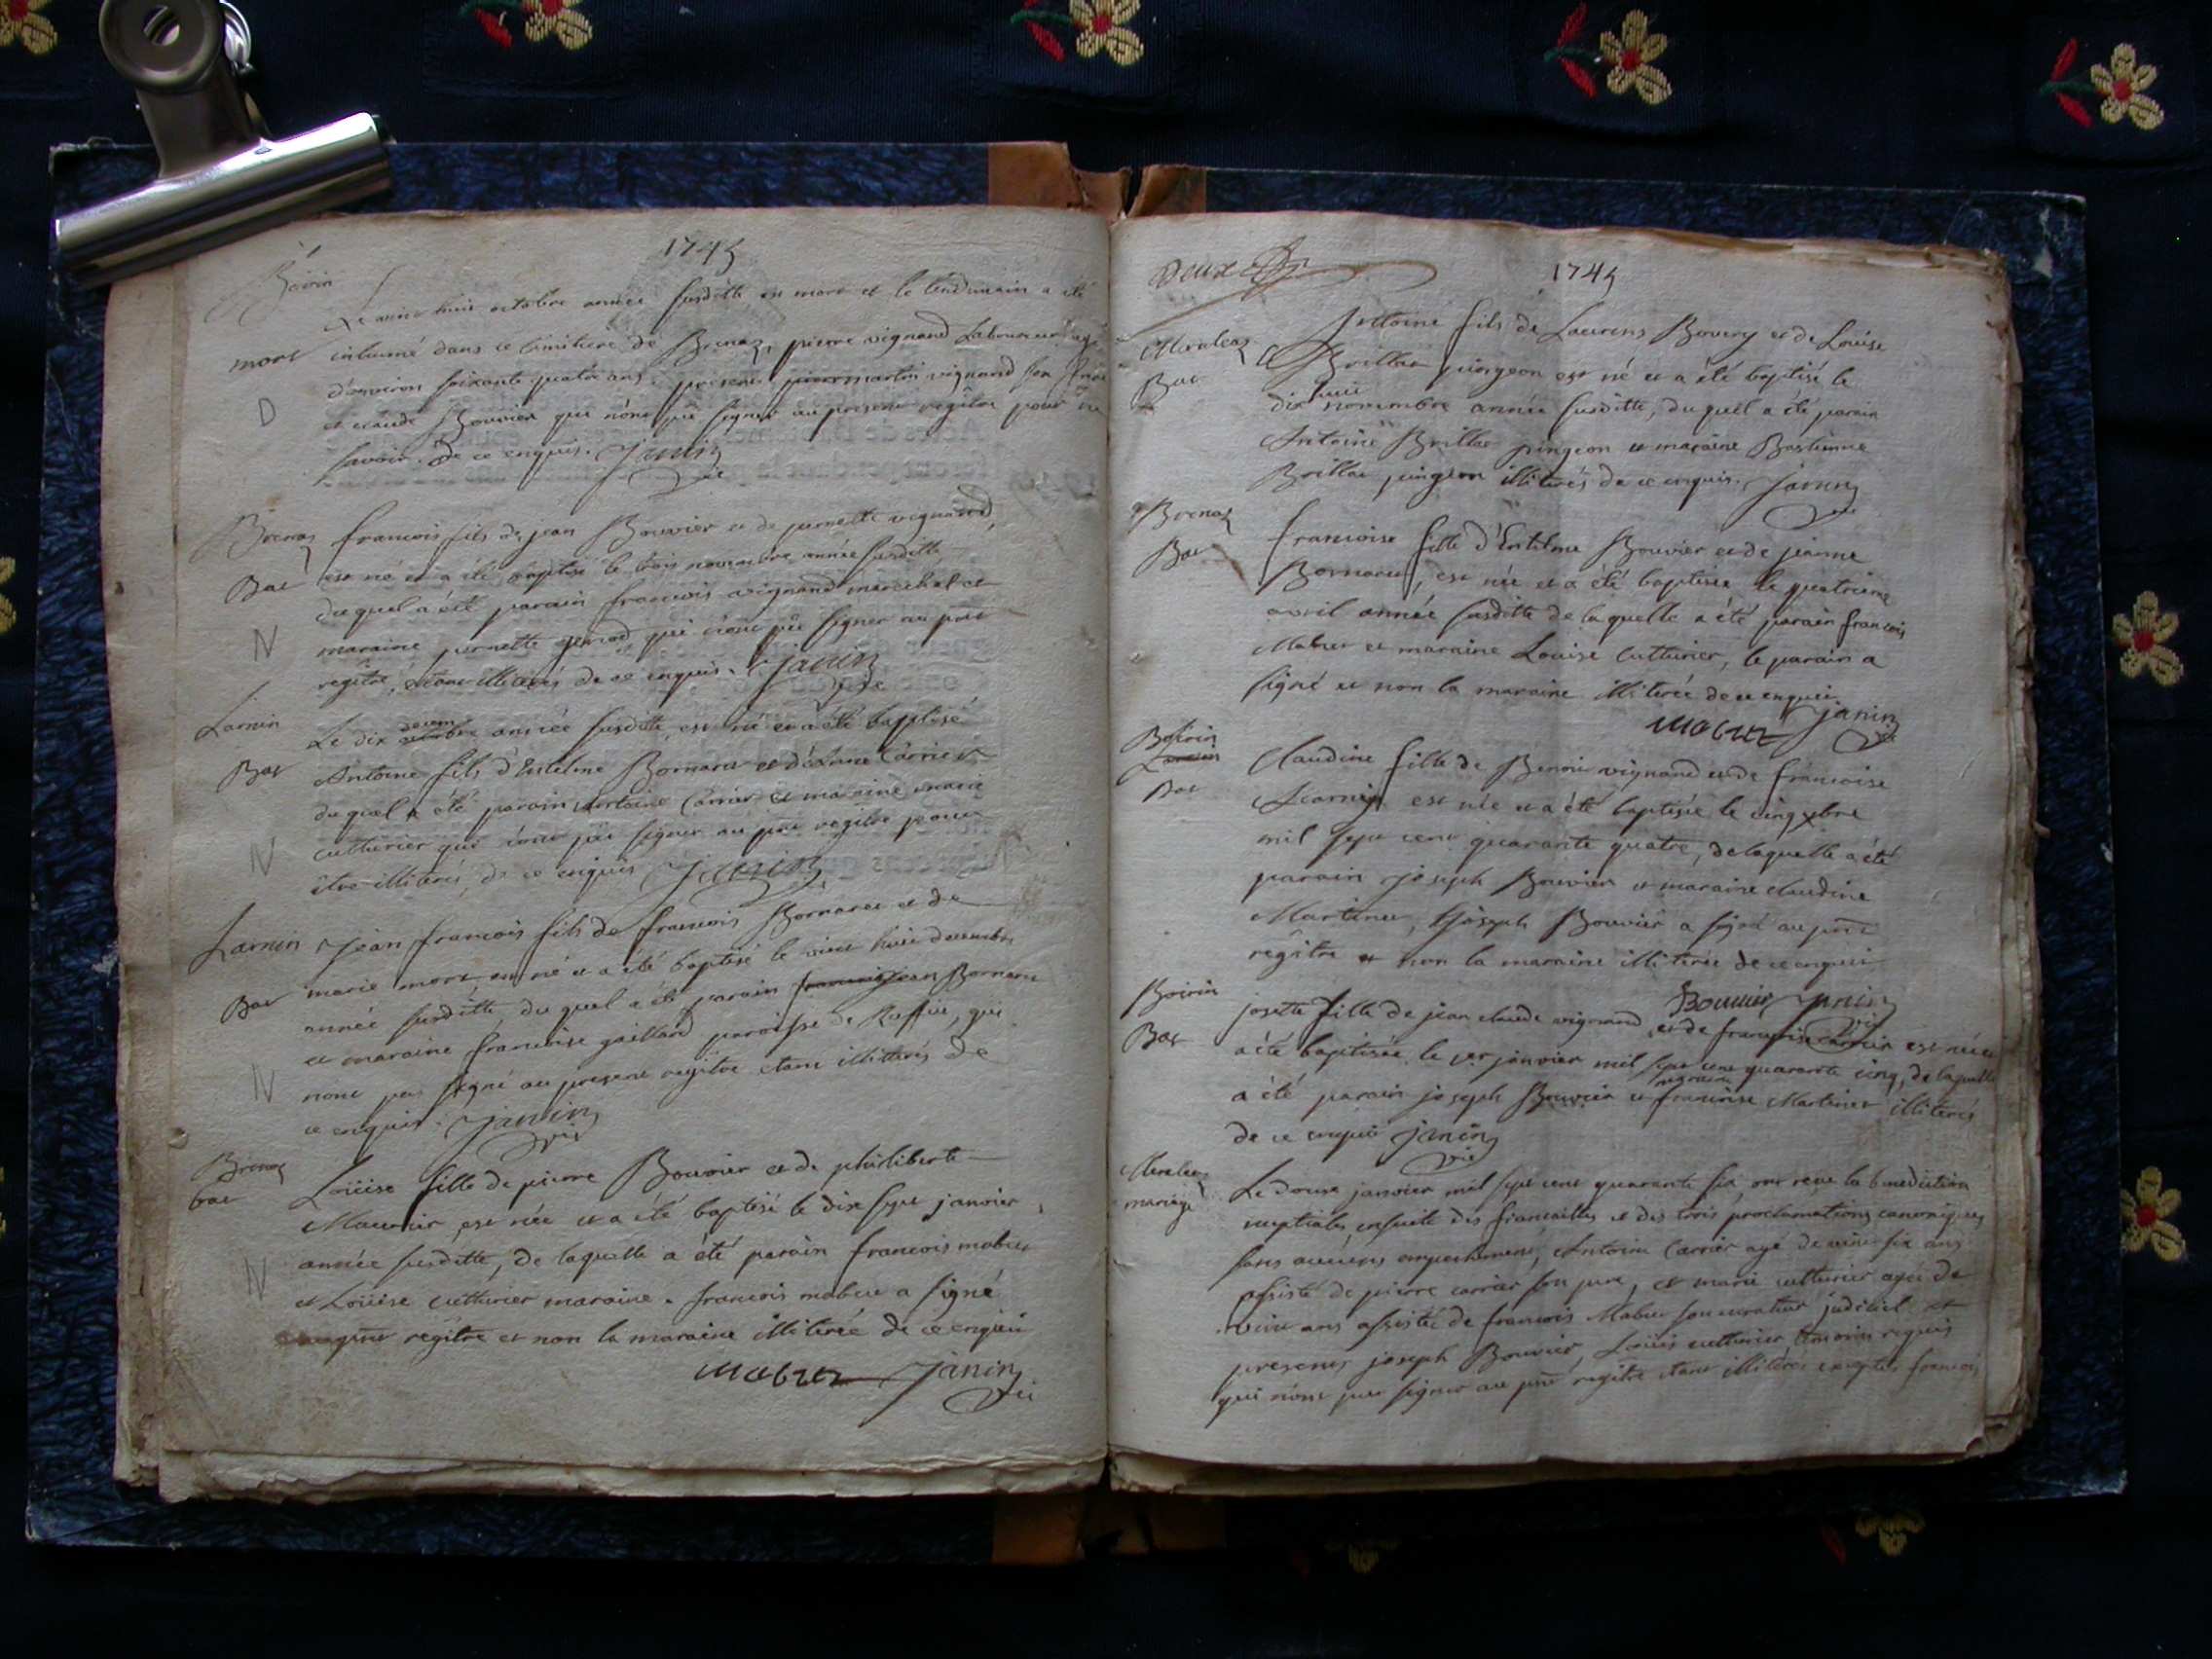 1745
Boirin
Le vint huit octobre année susditte est mort et le lendemain a été
mort
inhumé dans le cimitiere de Brenaz, pierre vignand Laboureur agé
d'environ soixante quatre ans. présents martin vignand son frere
D
et claude Bouvier qui n'ont pû signer au present regitre pour ne
savoir. de ce enquis. Janin
Brenaz
francois fils de jean Bouvier et de pernette vignand,
Bat
est né et a été baptisé le trois novembre année susditte
du quel a été parain francois vignand marechal et
N
maraine pernette qui n'ont pû signer au pnt
regitre, étant illiterés de ce enquis. Janin vic
Larnin
Le dix decembre année susditte, est né et a été baptisé
Bat
Antoine fils d'Entelme Bornaret et d' Carrier
du quel a été parain antoine Carrier et maraine marie
cutturier qui n'ont pû signer au pnt regitre pour
N
être illiterés, de ce enquis Janin
Larnin
Jean francois fils de francois Bornaret et de
Bat
marie mort, est né et a été baptisé le vint huit decembre
année susditte du quel a été parain francois jean Bornaret
et maraine francoise gaillard paroisse de Ruffieu, qui
N
n'ont pas signé au present regitre etant illiterés de
ce enquis. Janin vic
Brenaz
Loüise fille de pierre Bouvier et de philiberte
bat
Mounier, est née et a été baptisé le dix sept janvier
année susditte, de laquelle a été parain francois mabue
N
et Loüise cutturier maraine. francois mabue a signé
au pnt regitre et non la maraine illiterée de ce enquis
Janin vic
Deux
1745
Antoine fils de Laurens Bovery et de Loüise
Bat
Brillat pingeon est né et a été baptisé le
dix huit novembre année susditte, du quel a été parain
Antoine Brillat pingeon et maraine Bastienne
Brillat pingeon illiterés de ce enquis. Janin vic
Brenaz
francoise fille d'Entelme Bouvier et de jeanne
Bat
Bornaret, est née et a été baptisée le quatrieme
avril année susditte de laquelle a été parain francois
Mabue et maraine Louise cutturier, le parain a
signé et non la maraine illiterée de ce enquis
Janin vic
Boirin
Larnin
Claudine fille de Benoit vignand et de francoise
Bat
est née et a été baptisée le cinq xbre
mil sept cent quarante quatre, de laquelle a été
parain joseph Bouvier et maraine claudine
Martinet, joseph Bouvier a signé au pnt
regitre et non la maraine illiterée de ce enquis
Bouvier Janin vic
Boirin
josette fille de jean claude vignand et de francoise carrier est née et
Bat
a été baptisée le 1er janvier mil sept cent quarante cinq, de laquelle
a été parain joseph Bouvier et maraine francoise Martinet illiterés
de ce enquis Janin vic
mariage
Le douze janvier mil sept cent quarante six, ont recu la benediction
nuptiale, ensuite des fiancailles et des trois proclamations canoniques
sans aucuns empechement, Antoine Carrier agé de vint six ans
assisté de pierre carrier son pere, et marie cutturier agée de
vint ans assistée de francois Mabue son curateur judiciel et
presents joseph Bouvier, Loüis cutturier temoins requis
qui n'ont pu signer au pnt regitre etant illiterés exceptés francois